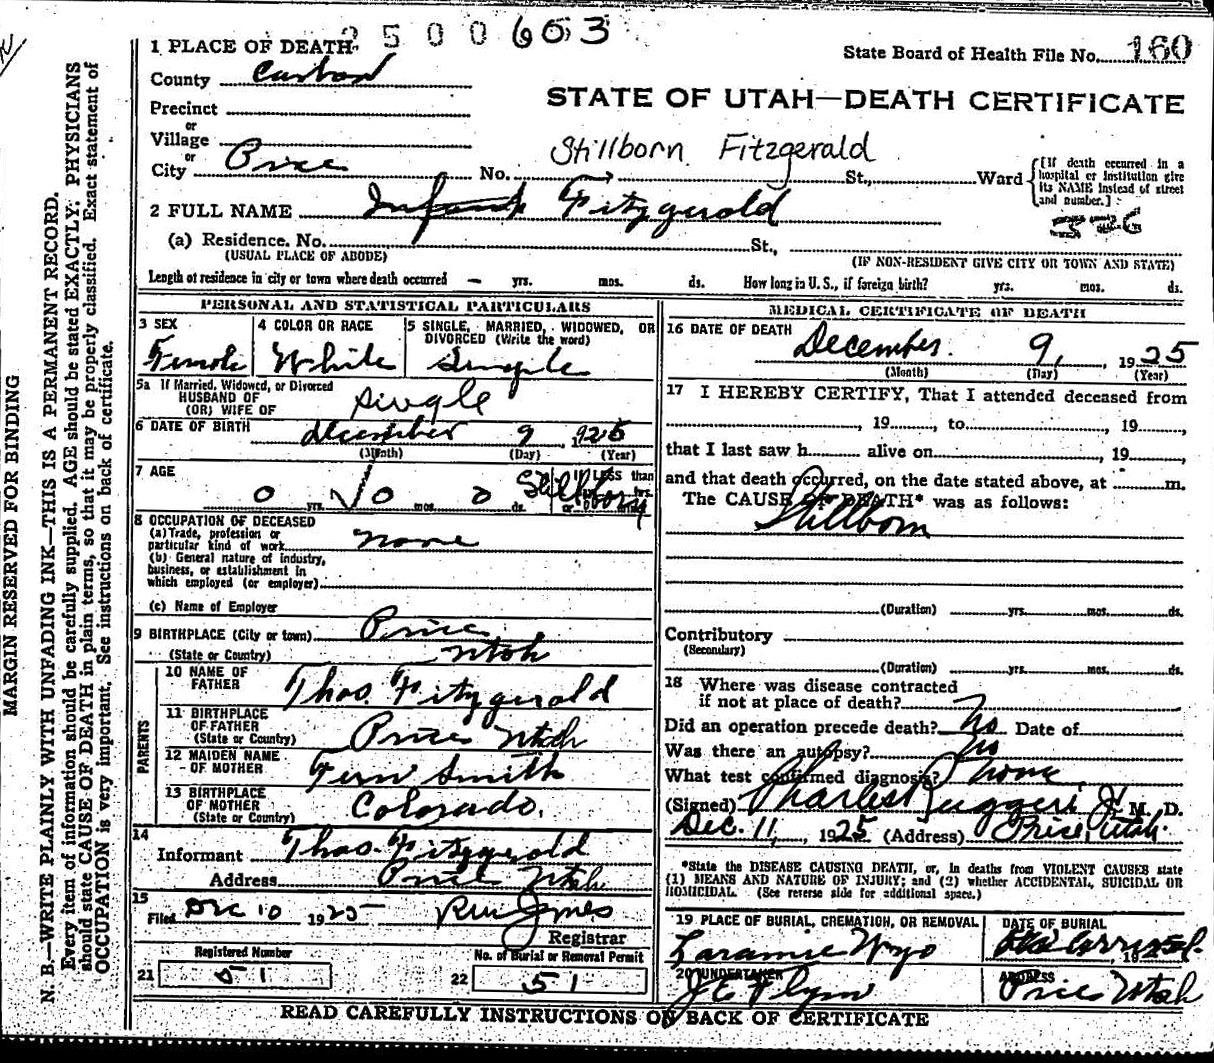 2500653
State Board of Health File No. 160
1 PLACE OF DEATH
County Carbon
STATE OF UTAH—DEATH CERTIFICATE
Precinct
or
Village
or
City Price No. Stillborn Fitzgerald St., Ward
[If death occurred in a hospital or institution give its NAME instead of street and number.]
2 FULL NAME Infant Fitzgerald
(a) Residence. No. St.,
(USUAL PLACE OF ABODE) (IF NON-RESIDENT GIVE CITY OR TOWN AND STATE)
Length of residence in city or town where death occurred — yrs. mos. ds. How long in U.S., if foreign birth? yrs. mos. ds.
PERSONAL AND STATISTICAL PARTICULARS
3 SEX Female
4 COLOR OR RACE White
5 SINGLE, MARRIED, WIDOWED, OR DIVORCED (Write the word) Single
5a If Married, Widowed, or Divorced
HUSBAND OF
(OR) WIFE OF single
6 DATE OF BIRTH december 9 1925
(Month) (Day) (Year)
7 AGE 0 yrs. 0 mos. 0 ds. Stillborn
8 OCCUPATION OF DECEASED
(a) Trade, profession or
particular kind of work none
(b) General nature of industry,
business, or establishment in
which employed (or employer)
(c) Name of Employer
9 BIRTHPLACE (City or town) Price
(State or Country) Utah
PARENTS
10 NAME OF FATHER Thos. Fitzgerald
11 BIRTHPLACE OF FATHER (State or Country) Price Utah
12 MAIDEN NAME OF MOTHER Fern Smith
13 BIRTHPLACE OF MOTHER (State or Country) Colorado.
14
Informant Thos. Fitzgerald
Address Price Utah
15
Filed Dec 10 1925
Registrar
Registered Number
21 51
No. of Burial or Removal Permit
22 51
MEDICAL CERTIFICATE OF DEATH
16 DATE OF DEATH December 9, 1925
(Month) (Day) (Year)
17 I HEREBY CERTIFY, That I attended deceased from
, 19 , to , 19 ,
that I last saw h alive on , 19 ,
and that death occurred, on the date stated above, at m.
The CAUSE OF DEATH* was as follows:
Stillborn
(Duration) yrs. mos. ds.
Contributory
(Secondary)
(Duration) yrs. mos. ds.
18 Where was disease contracted
if not at place of death?
Did an operation precede death? No Date of
Was there an autopsy? No
What test confirmed diagnosis? None
(Signed) Charles Ruggeri Jr. M. D.
Dec. 11, 1925 (Address) Price, Utah.
*State the DISEASE CAUSING DEATH, or, in deaths from VIOLENT CAUSES state
(1) MEANS AND NATURE OF INJURY; and (2) whether ACCIDENTAL, SUICIDAL OR
HOMICIDAL. (See reverse side for additional space.)
19 PLACE OF BURIAL, CREMATION, OR REMOVAL
Laramie Wyo
DATE OF BURIAL
20 UNDERTAKER
J E Flynn
ADDRESS
Price Utah
READ CAREFULLY INSTRUCTIONS ON BACK OF CERTIFICATE
MARGIN RESERVED FOR BINDING
N. B.—WRITE PLAINLY WITH UNFADING INK—THIS IS A PERMANENT RECORD.
Every item of information should be carefully supplied. AGE should be stated EXACTLY; PHYSICIANS
should state CAUSE OF DEATH in plain terms, so that it may be properly classified. Exact statement of
OCCUPATION is very important. See instructions on back of certificate.